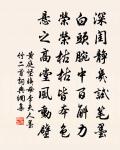 深閨静奥試笔墨
白頭腕中百斛力
榮榮枯枯皆本色
懸之高堂風動壁
黄庭堅姨母李夫人墨
竹二首詞典網集